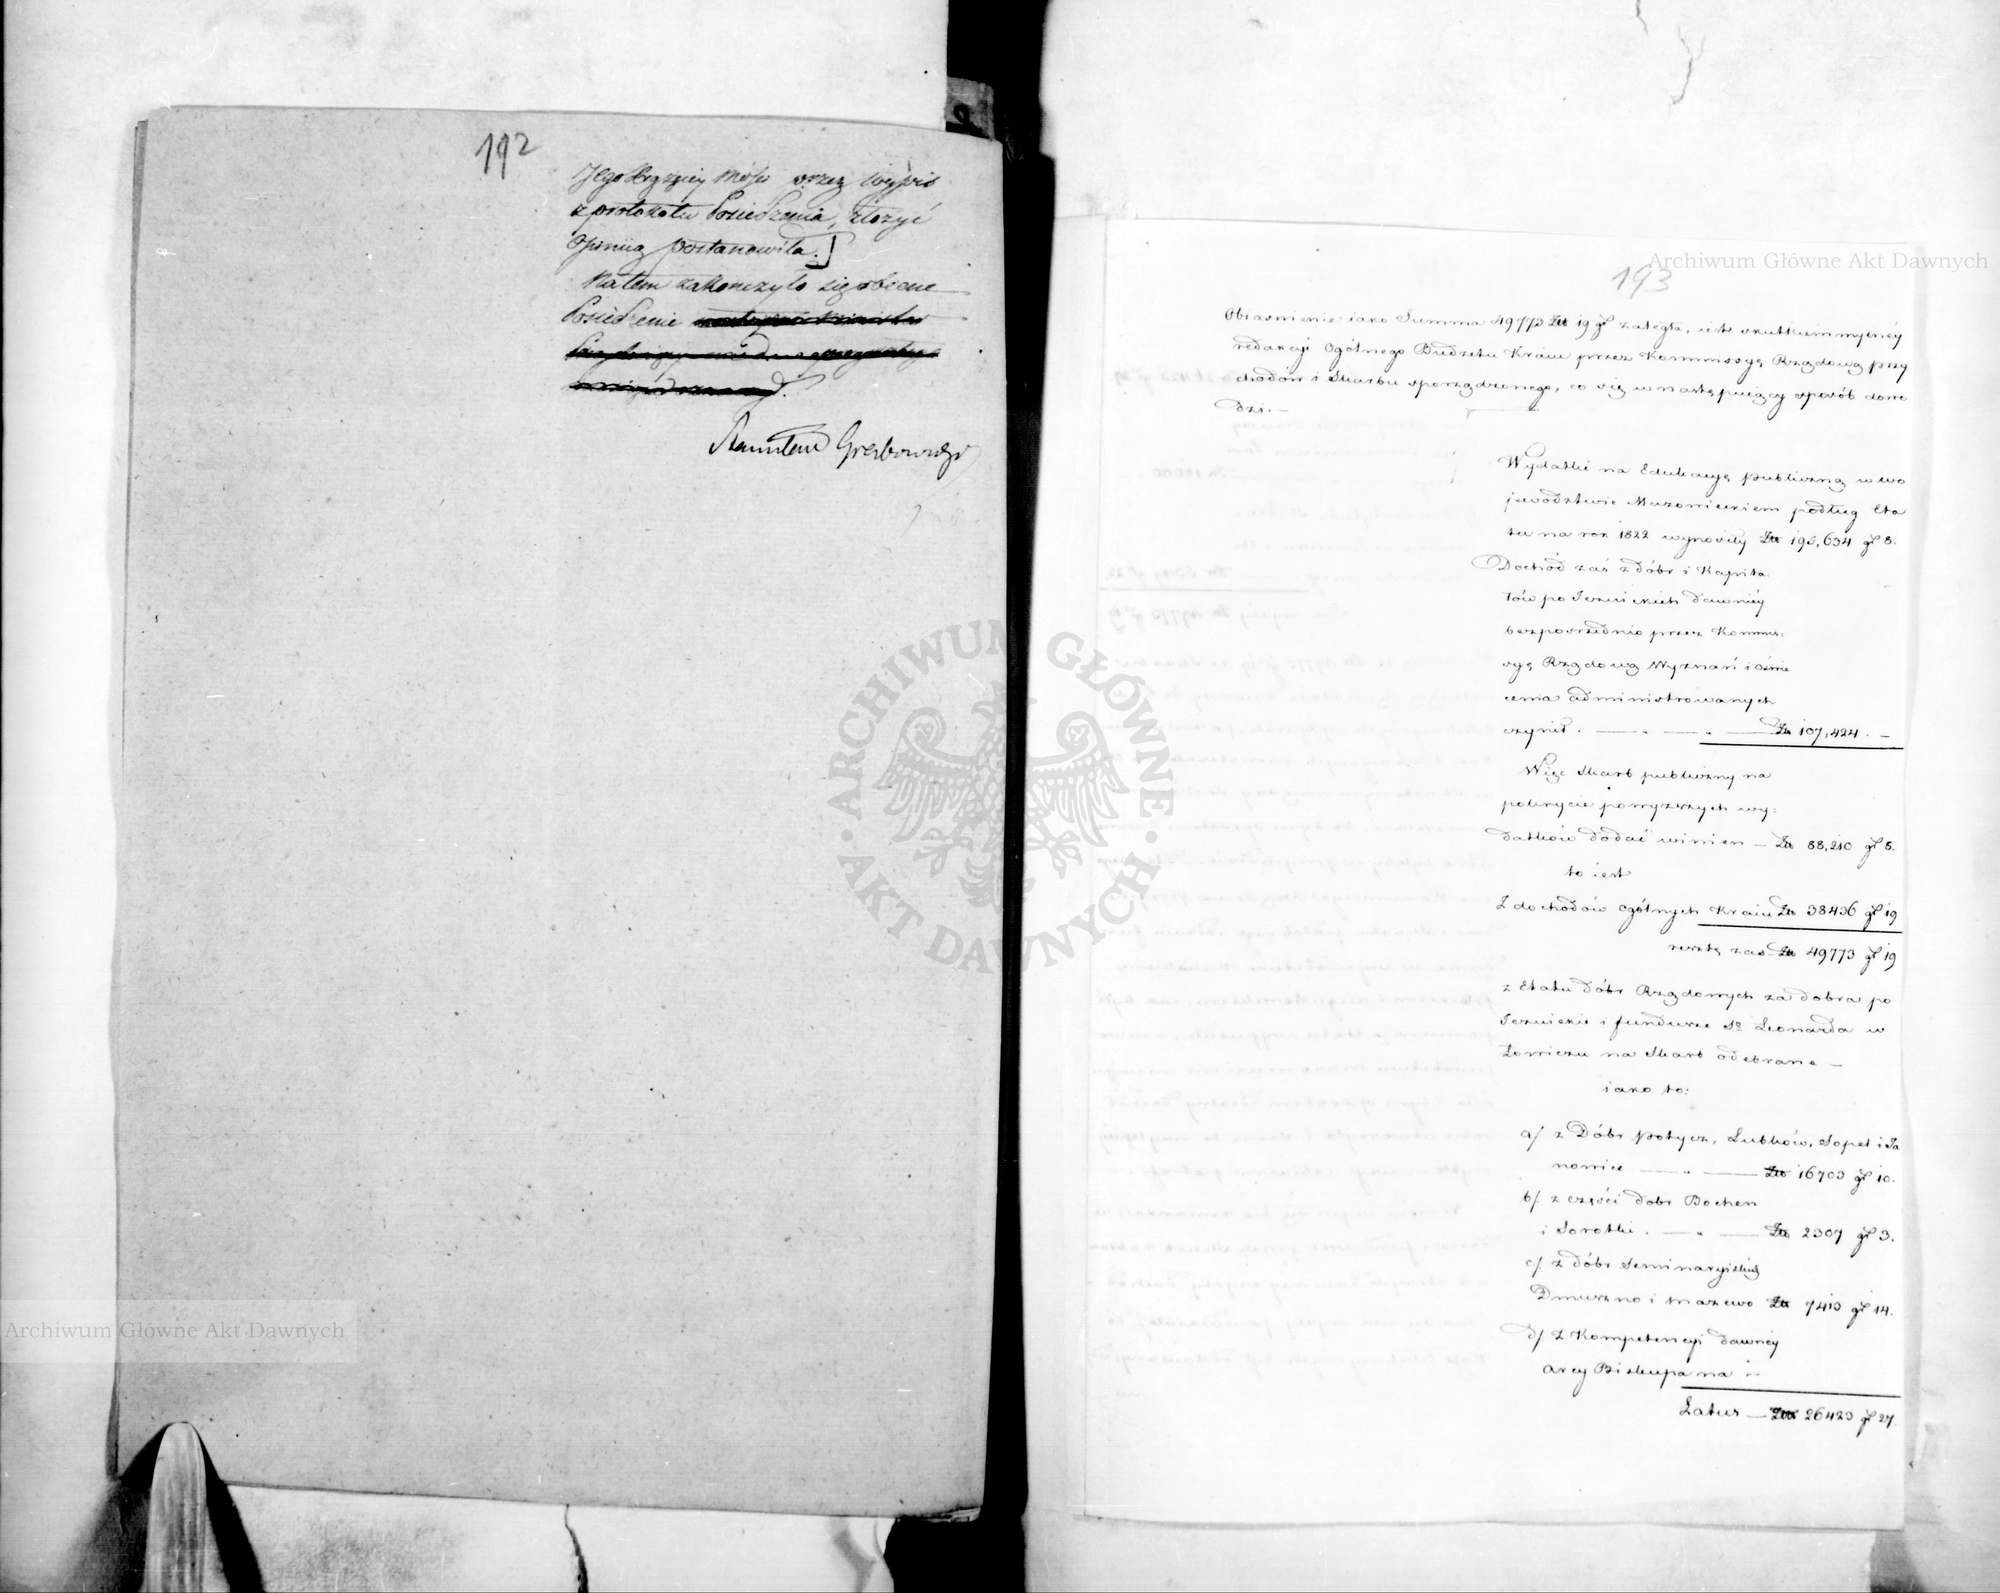 192
Jego Xcey Mości przez wypis
z protokołu Posiedzenia, złożyć
opinią postanowiła.]
Na tem zakończyło się obecne
Posiedzenie
Stanisław Grabowski
193
Obiasnienie iako Summa 49773 Złt 19 gr zaległa, iest skutkiem mylnéy
redakcyi Ogólnego Budżetu Kraiu przez Kommissyą Rządową przy
chodów i Skarbu sporządzonego, co się w następuiący sposób dowo
dzi. –
Wydatki na Edukacyą publiczną w wo
jewództwie Mazowieckiem podług Eta
tu na rok 1822 wynosiły Złt 195,634 gr 8.
Dochód zaś z dóbr i Kapita-
łów po Jezuickich dawniéy
bezpośrednio przez Kommis:
syą Rządową Wyznań i Oświe
cenia administrowanych
czynił. — „ — „ — Złt 107,424. –
Więc Skarb publiczny na
pokrycie powyższych wy:
datków dodać winien — Złt 88,210 gr 8.
to iest
Z dochodów ogólnych Kraiu Złt 38436 gr 19
resztę zaś Złt 49773 gr 19
z Etatu dóbr Rządowych za dobra po
Jezuickie i fundusze Sgo Leonarda w
Łowiczu na Skarb odebrane –
iako to:
a/ z Dóbr Potycz, Lubków, Sopel i Ja
nowice — „ — Złt 16703 gr 10.
b/ z części dóbr Bochen
i Sorotki. — „ — Złt 2307 gr 3.
c/ z dóbr Seminaryiskich
Dmuszno i Mazewo Złt 7413 gr 14.
d/ z Kompetencyi dawnéy
Arcy Biskupa na –
Latus — Złt 26423 gr 27.
Archiwum Główne Akt Dawnych
Archiwum Główne Akt Dawnych
ARCHIWUM GŁÓWNE AKT DAWNYCH